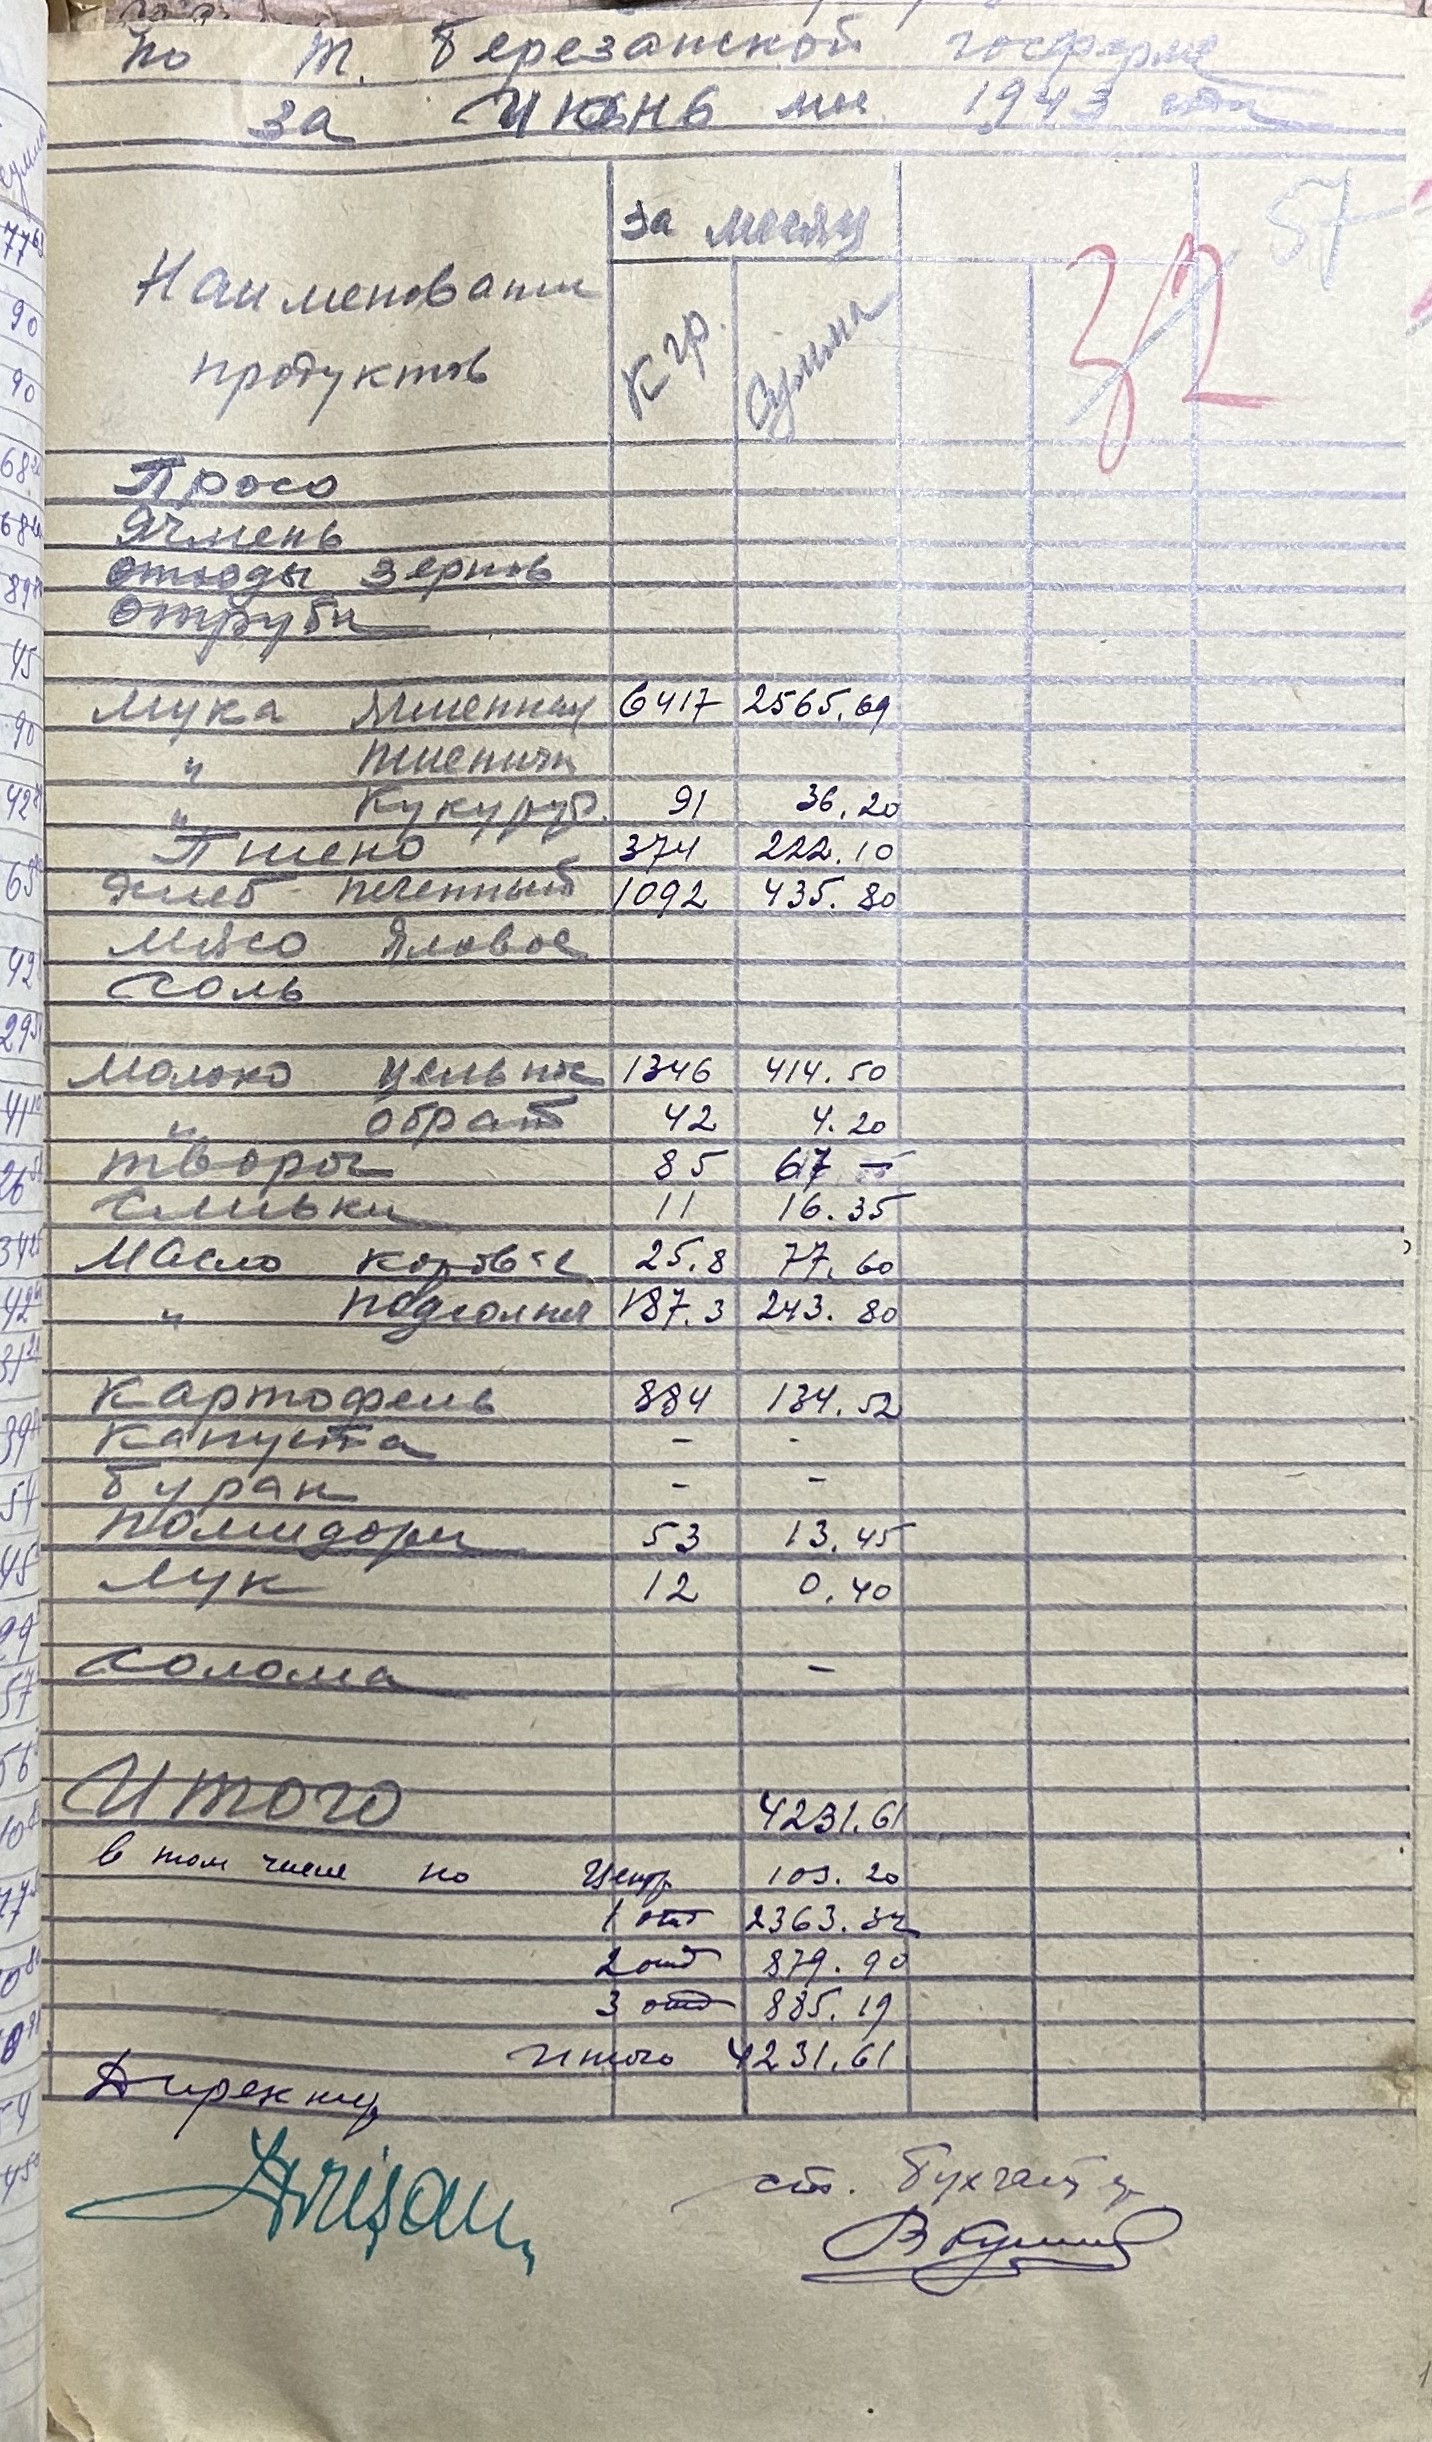 по Т. Березанской госферме
за Июнь м-ц 1943 года
57
32
Наименование продуктов
за месяц
Кгр.
Сумма
Просо
Ячмень
отходы зернов
отруби
Мука Ячменная 6417 2565.69
" пшеничн
" Кукуруз. 91 36.20
Пшено 374 222.10
Хлеб печенный 1092 435.80
Мясо Яловое
Соль
Молоко цельное 1346 414.50
" обрат 42 4.20
творог 85 67 —
Сливки 11 16.35
Масло коровье 25.8 77.60
" подсолн 187.3 243.80
Картофель 884 134.52
Капуста - -
Бурак - -
Помидоры 53 13.45
Лук 12 0.40
Солома -
Итого 4231.61
в том числе по Центр. 103.20
1 отд 2363.32
2 отд 879.90
3 отд 885.19
Итого 4231.61
Директор
ст. бухгалтер